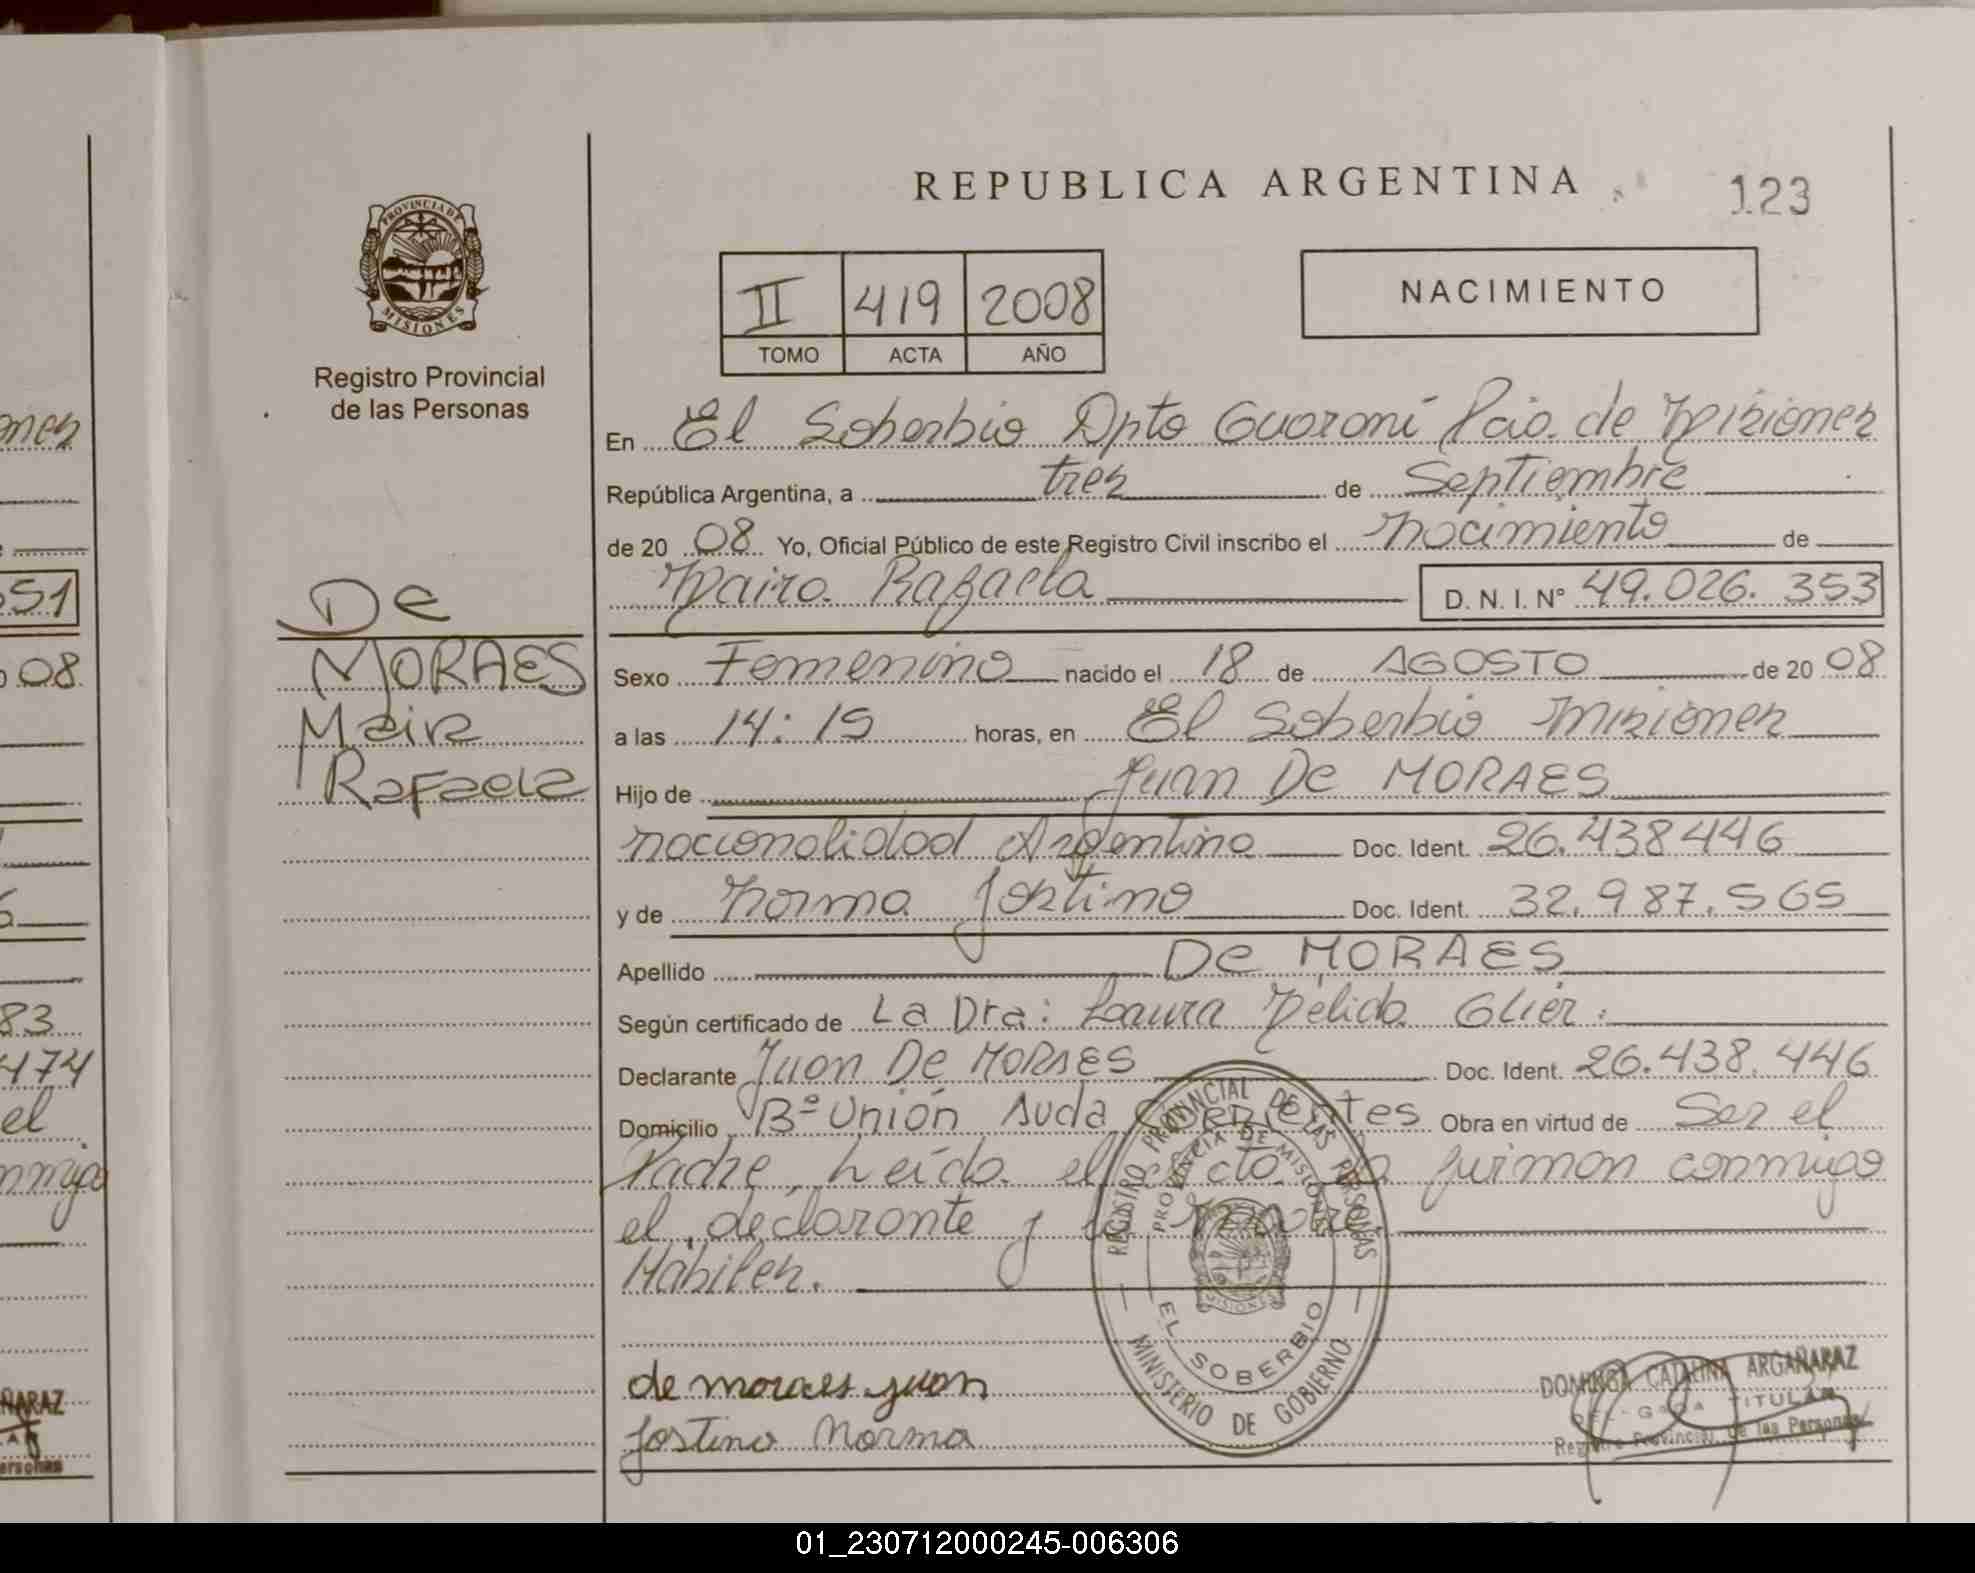 REPUBLICA ARGENTINA
123
PROVINCIA DE
MISIONES
Registro Provincial
de las Personas
II 419 2008
TOMO ACTA AÑO
NACIMIENTO
De
MORAES
Maira
Rafaela
En El Soberbio Dpto Guaraní Pcia. de Misiones
República Argentina, a tres de Septiembre
de 20 08 Yo, Oficial Público de este Registro Civil inscribo el nacimiento de
Maira Rafaela D. N. I. N° 49.026.353
Sexo Femenino nacido el 18 de AGOSTO de 20 08
a las 14:15 horas, en El Soberbio Misiones
Hijo de Juan De MORAES
nacionalidad Argentina Doc. Ident. 26.438446
y de Norma Jostino Doc. Ident. 32.987.565
Apellido De MORAES
Según certificado de La Dra: Laura Nélida Glier.
Declarante Juan De MORAES Doc. Ident. 26.438.446
Domicilio Bº Unión Avda Corrientes Obra en virtud de Ser el
Padre, Leída el acta la firman conmigo
el declarante y la madre
Hábiles.
REGISTRO PROVINCIAL DE LAS PERSONAS
PROVINCIA DE MISIONES
MISIONES
EL SOBERBIO
MINISTERIO DE GOBIERNO
de moraes juan
Jostino Norma
DOMINGA CATALINA ARGAÑARAZ
DELEGADA TITULAR
Registro Provincial de las Personas
ones
51
08
83
474
el
nmigo
ÑARAZ
ersonas
01_230712000245-006306